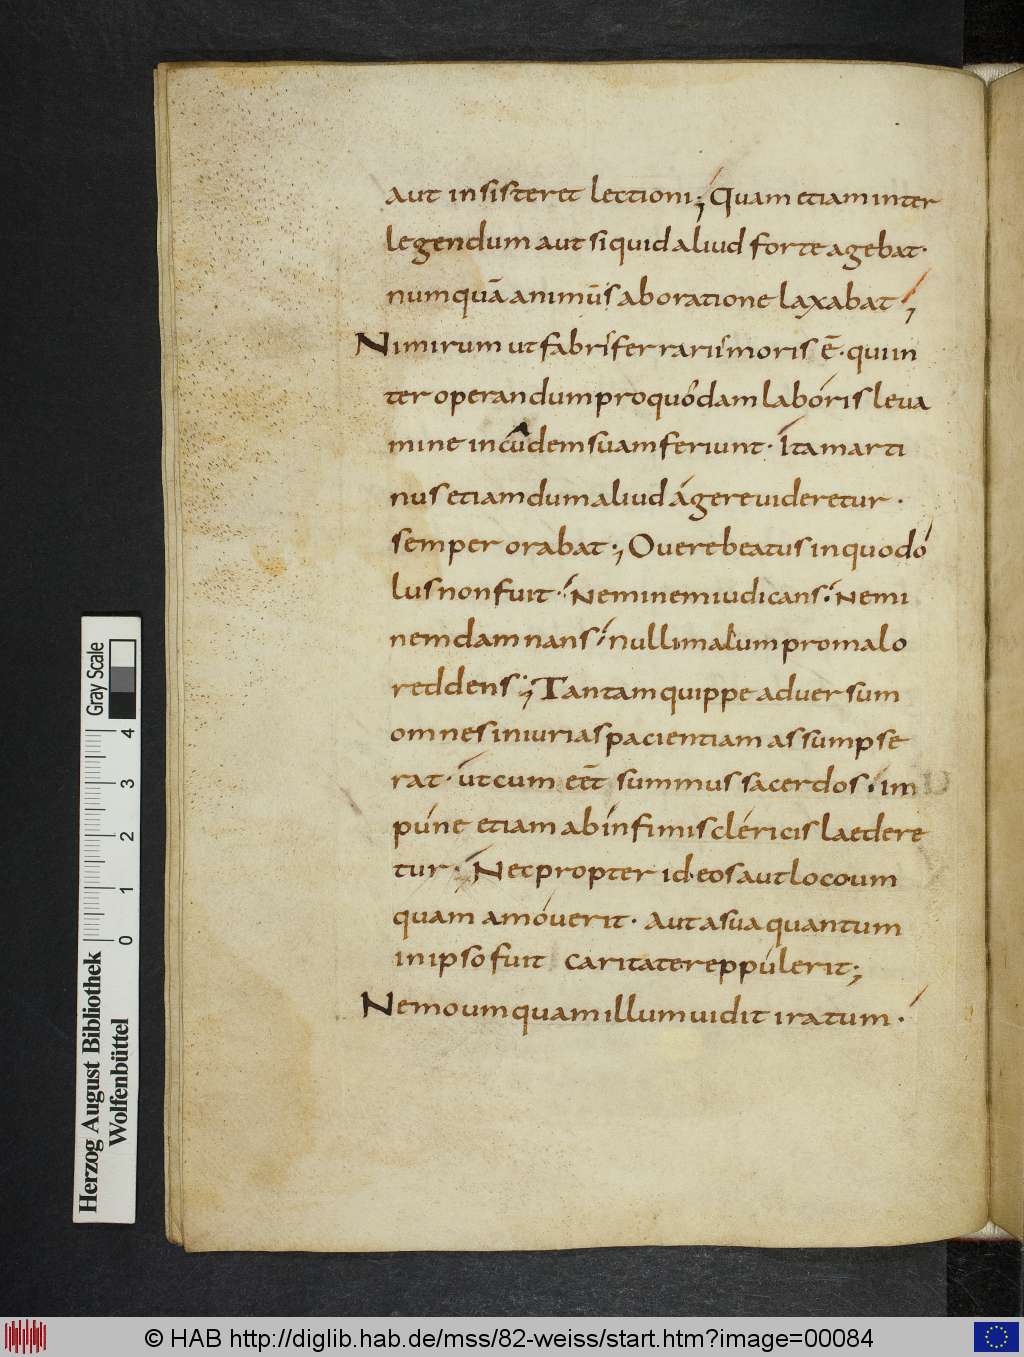 aut insisteret lectioni; Quam etiam inter
legendum aut siquid aliud forte agebat·
numquā animūs aboratione laxabat;
Nimirum ut fabri ferrarii moris ē· qui in
ter operandum proquodam labóris leva
mine incudem suam feriunt· Ita marti
nus etiam dum aliud ágere uideretur·
semper orabat·, O uere beatus inquo do
lus non fuit· Neminem iudicans· Nemi
nem damnans· nulli malum pro malo
reddens·; Tantam quippe aduersum
omnes iniurias pacientiam assumpse
rat· ut cum eēt summus sacerdos· im
púne etiam ab ínfimis cléricis laedere
tur· Nec propter id·eos aut loco um
quam amóuerit· aut asua quantum
in ipso fuit caritate reppúlerit;
Nemo umquam illum uidit iratum·
Gray Scale
0 1 2 3 4
Herzog August Bibliothek
Wolfenbüttel
© HAB http://diglib.hab.de/mss/82-weiss/start.htm?image=00084